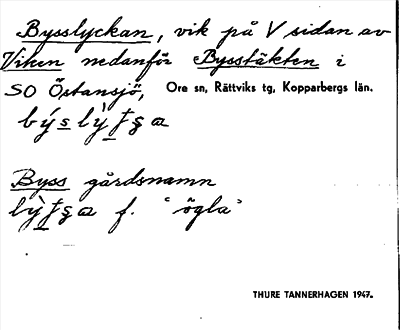 Bysslyckan, vik på V sidan av
Viken nedanför Bysstäkten i
SO Östansjö, Ore sn, Rättviks tg, Kopparbergs län.
Byss gårdsnamn
f. "ögla"
THURE TANNERHAGEN 1947.